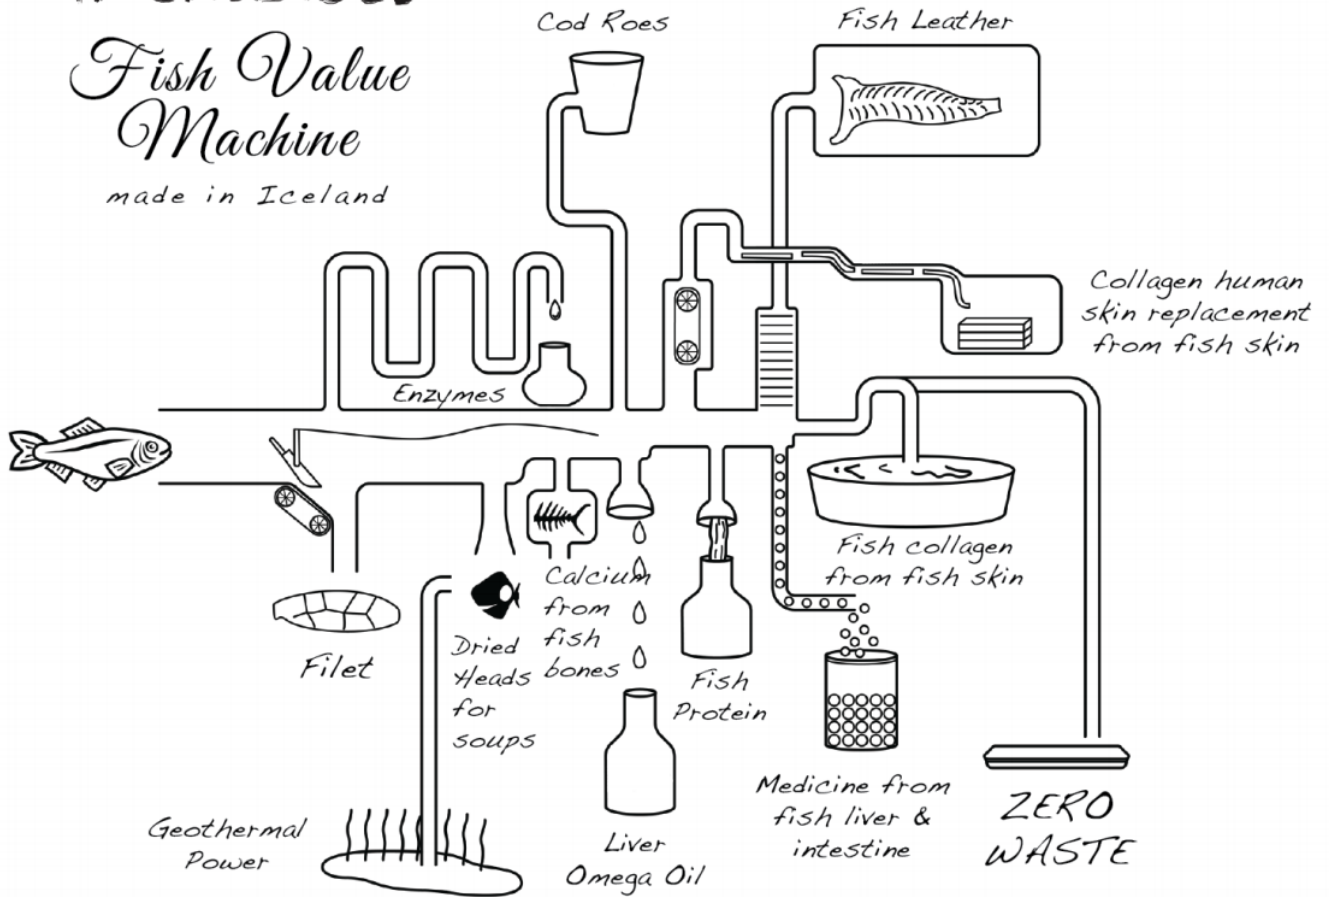 Fish Value
Machine
made in Iceland
Cod Roes
Fish Leather
Collagen human
skin replacement
from fish skin
Enzymes
Fish collagen
from fish skin
Filet
Dried
Heads
for
soups
Calcium
from
fish
bones
Fish
Protein
Geothermal
Power
Liver
Omega Oil
Medicine from
fish liver &
intestine
ZERO
WASTE